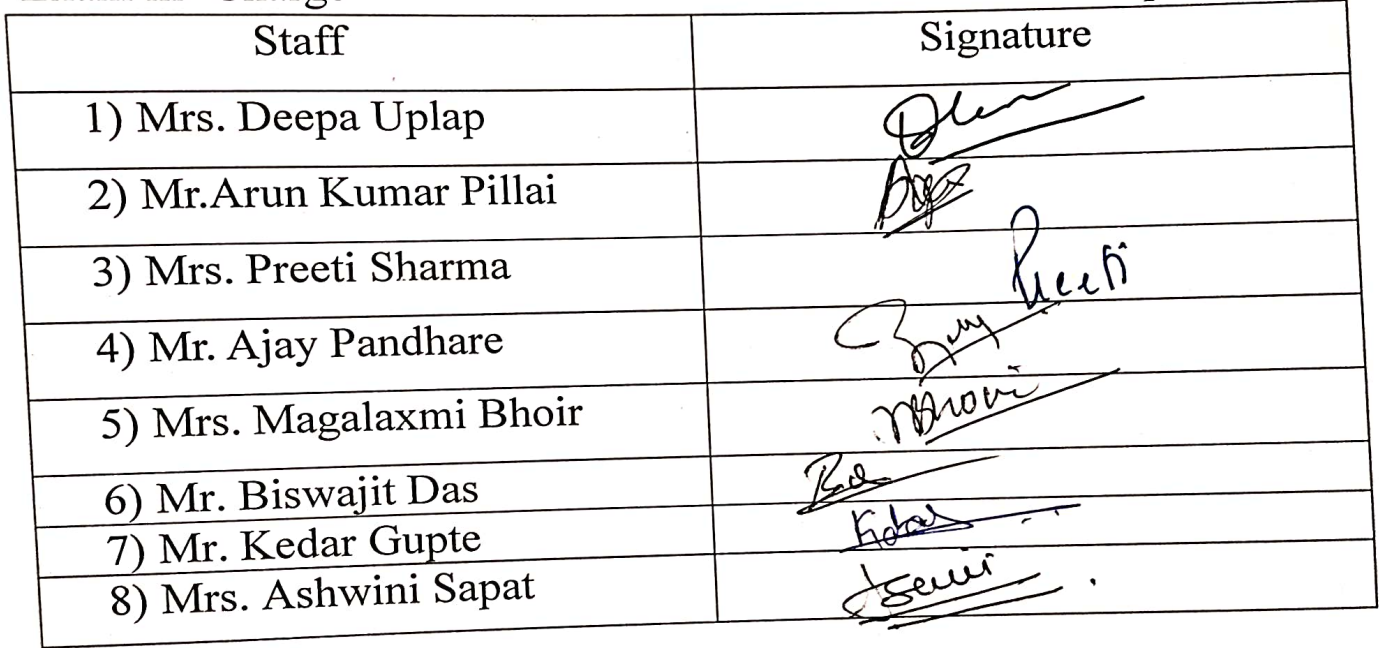 Staff Signature
1) Mrs. Deepa Uplap
2) Mr.Arun Kumar Pillai
3) Mrs. Preeti Sharma Preeti
4) Mr. Ajay Pandhare
5) Mrs. Magalaxmi Bhoir
6) Mr. Biswajit Das
7) Mr. Kedar Gupte
8) Mrs. Ashwini Sapat